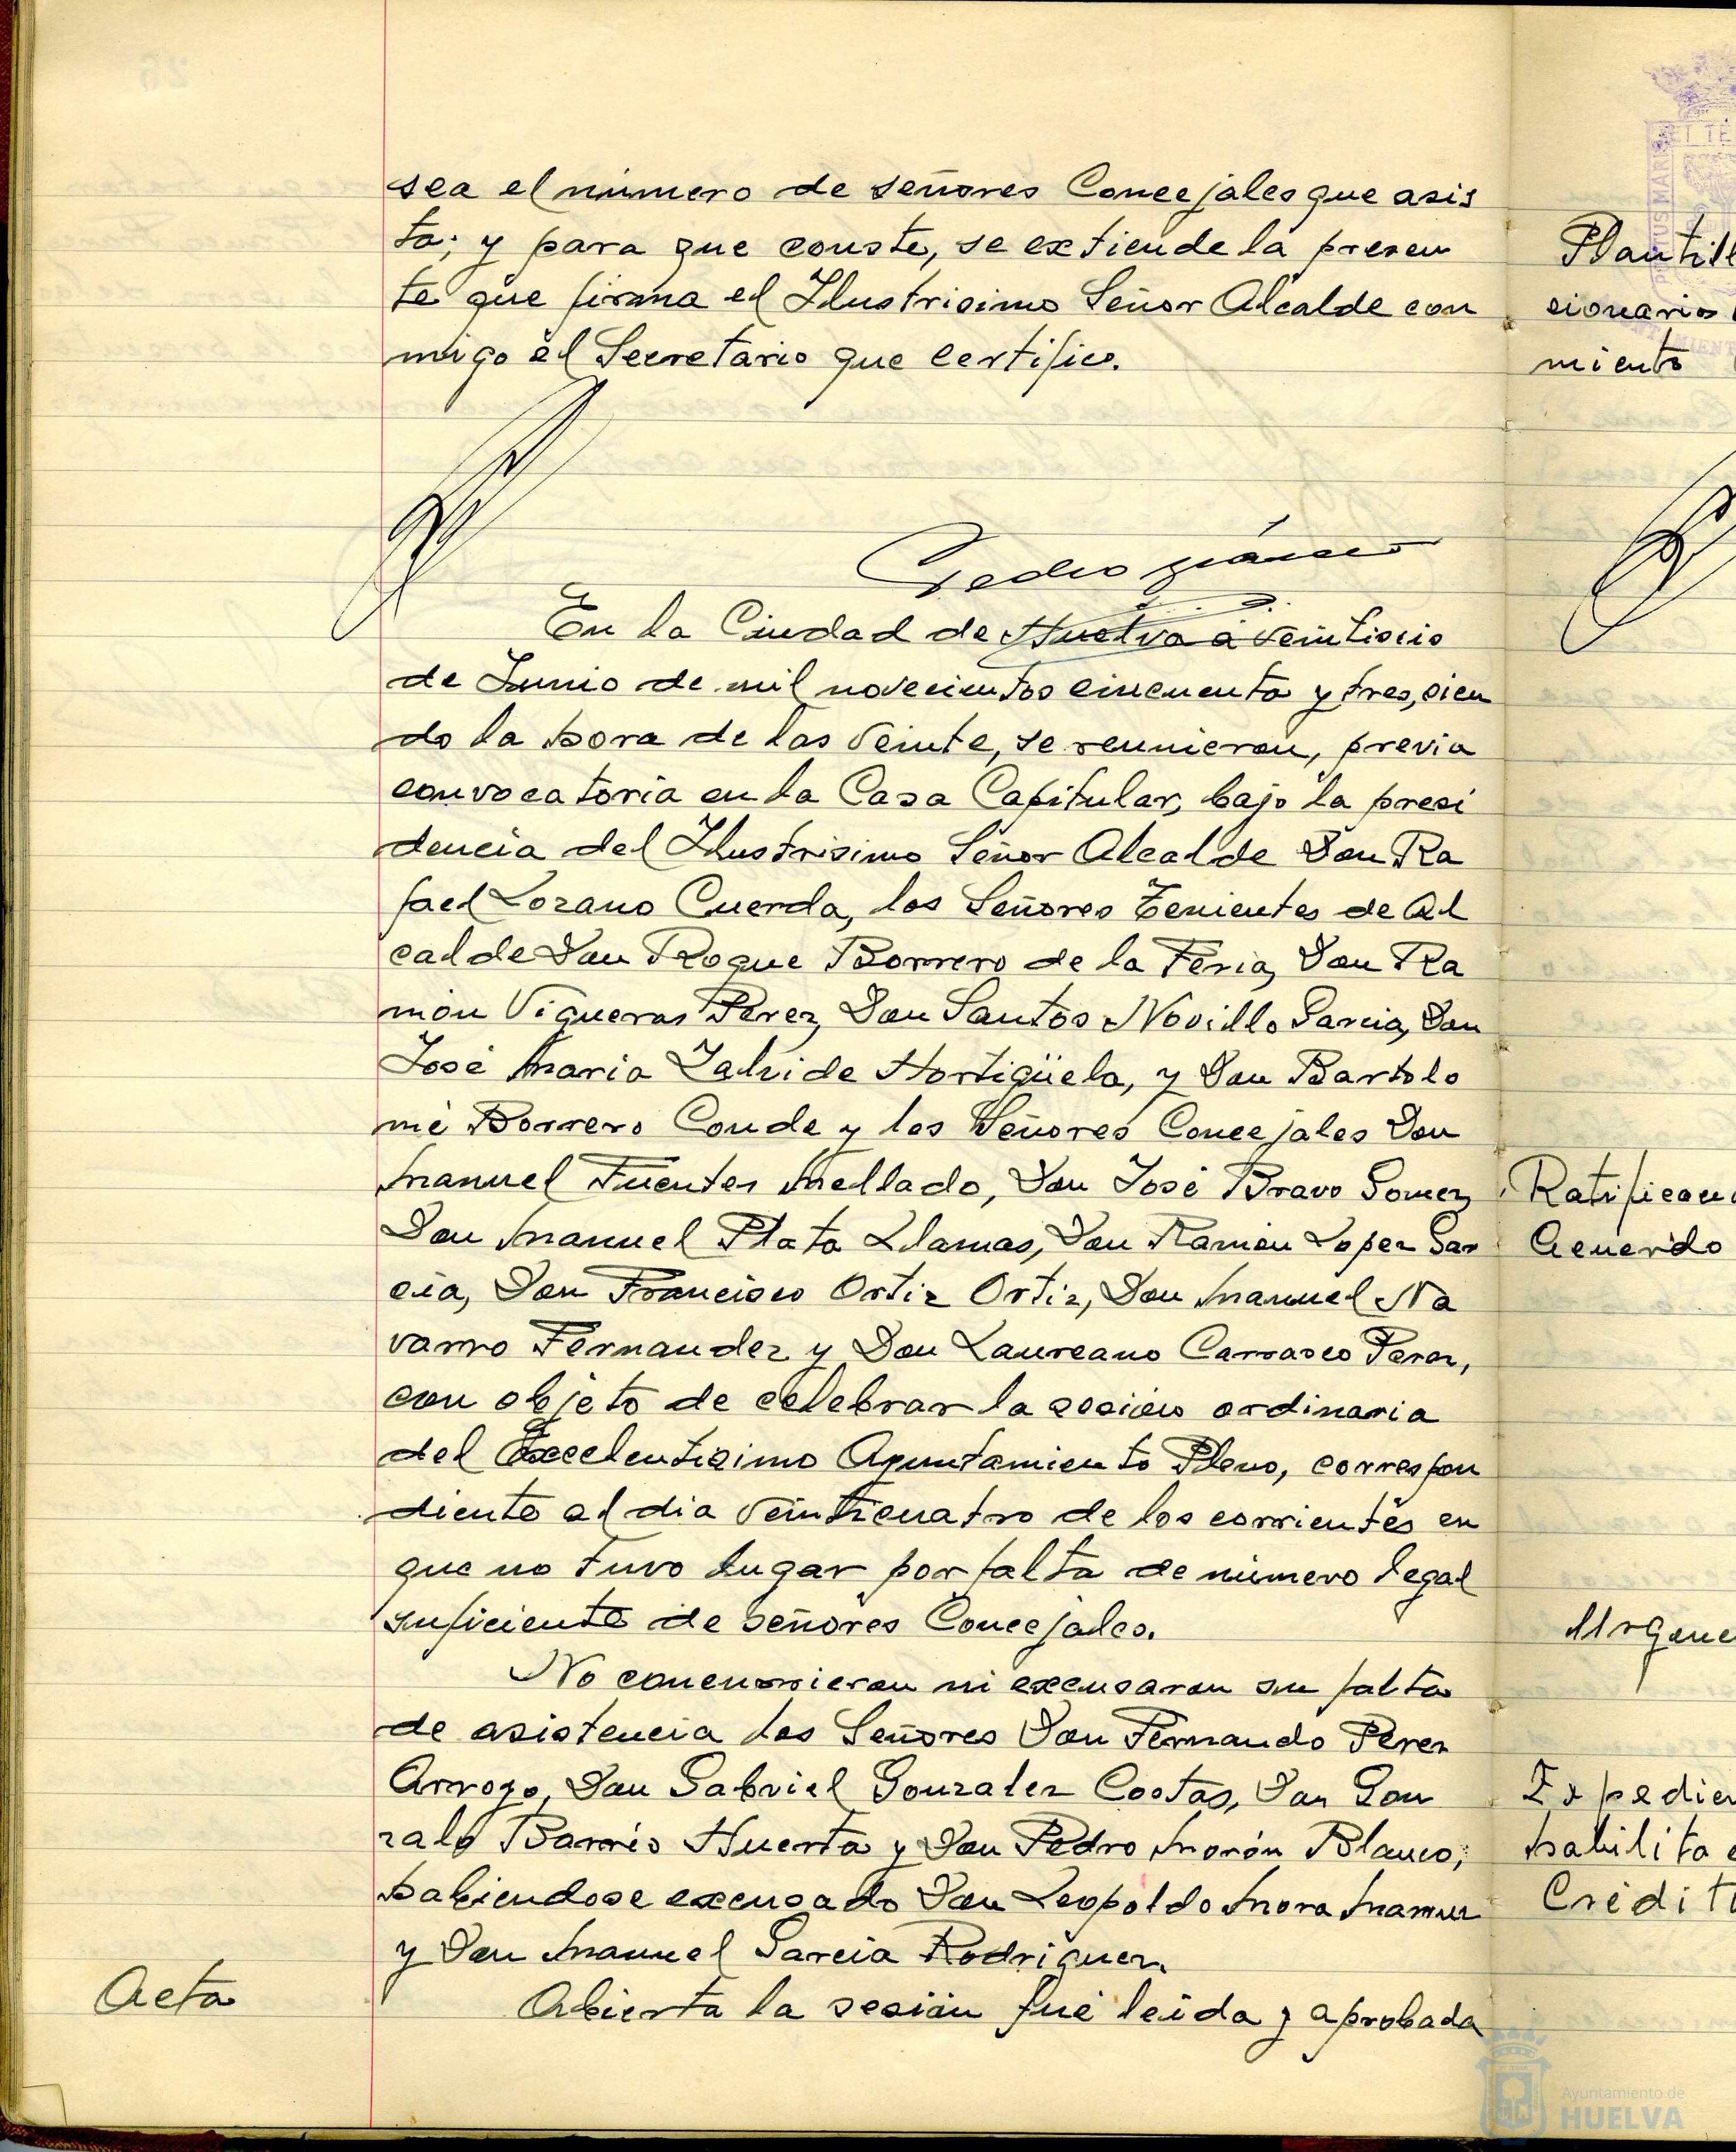 sea el número de señores Concejales que asis
ta; y para que conste, se extiende la presen
te que firma el Ilustrisimo Señor Alcalde con
migo el Secretario que certifico.
Pedro
En la Ciudad de Huelva a veintiseis
de Junio de mil novecientos cincuenta y tres, sien
do la hora de las veinte, se reunieron, previa
convocatoria en la Casa Capitular, bajo la presi
dencia del Ilustrisimo Señor Alcalde Don Ra
fael Lozano Cuerda, los Señores Tenientes de Al
calde Don Roque Borrero de la Feria, Don Ra
món Vigueras Perez, Don Santos Novillo Garcia, Don
José Maria Zalvide Hortigüela, y Don Bartolo
mé Borrero Conde y los Señores Concejales Don
Manuel Fuentes Mellado, Don José Bravo Gomez,
Don Manuel Plata Llamas, Don Ramón Lopez Gar
cia, Don Francisco Ortiz Ortiz, Don Manuel Na
varro Fernandez y Don Laureano Carrasco Perez,
con objeto de celebrar la sesión ordinaria
del Excelentisimo Ayuntamiento Pleno, correspon
diente al dia veinticuatro de los corrientes en
que no tuvo lugar por falta de número legal
suficiente de señores Concejales.
No concurrieron ni excusaron su falta
de asistencia los Señores Don Fernando Perez
Arroyo, Don Gabriel Gonzalez Costas, Don Gon
zalo Barrís Huerta y Don Pedro Morón Blanco;
habiendose excusado Don Leopoldo Mora
y Don Manuel Garcia Rodriguez.
Acta
Abierta la sesión fué leida y aprobada
Plantill
cionarios
miento
Ratifican
Acuerdo
Urgenc
Expedien
habilita
Crédit
Ayuntamiento de
HUELVA